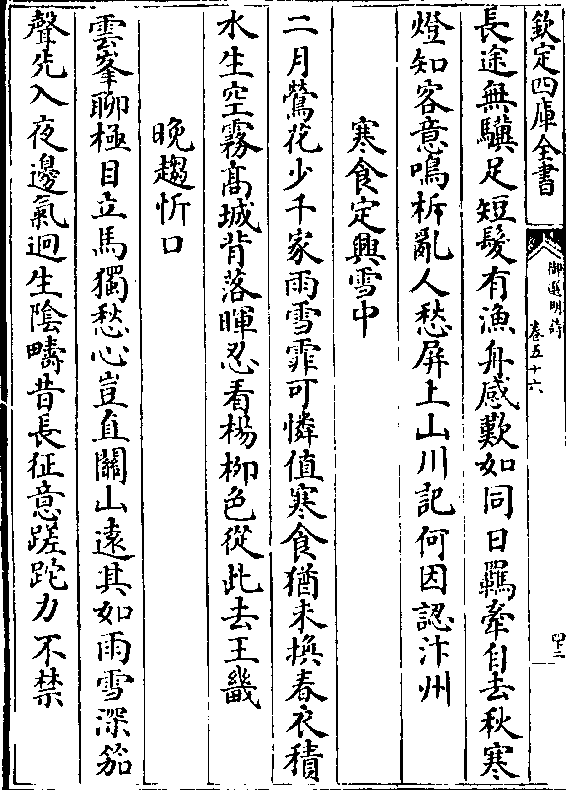 欽定四庫全書
御選明詩
卷五十六
四十二
長途無驥足短髪有漁舟感歎如同日羈牽自去秋寒
燈知客意鳴柝亂人愁屏上山川記何因認汴州
寒食定興雪中
二月鶯花少千家雨雪霏可憐值寒食猶未換春衣積
水生空霧髙城背落暉忍看楊栁色從此去王畿
晚趨忻口
雲峯聊極目立馬獨愁心豈直關山逺其如雨雪深笳
聲先入夜邊氣迥生陰疇昔長征意蹉跎力不禁